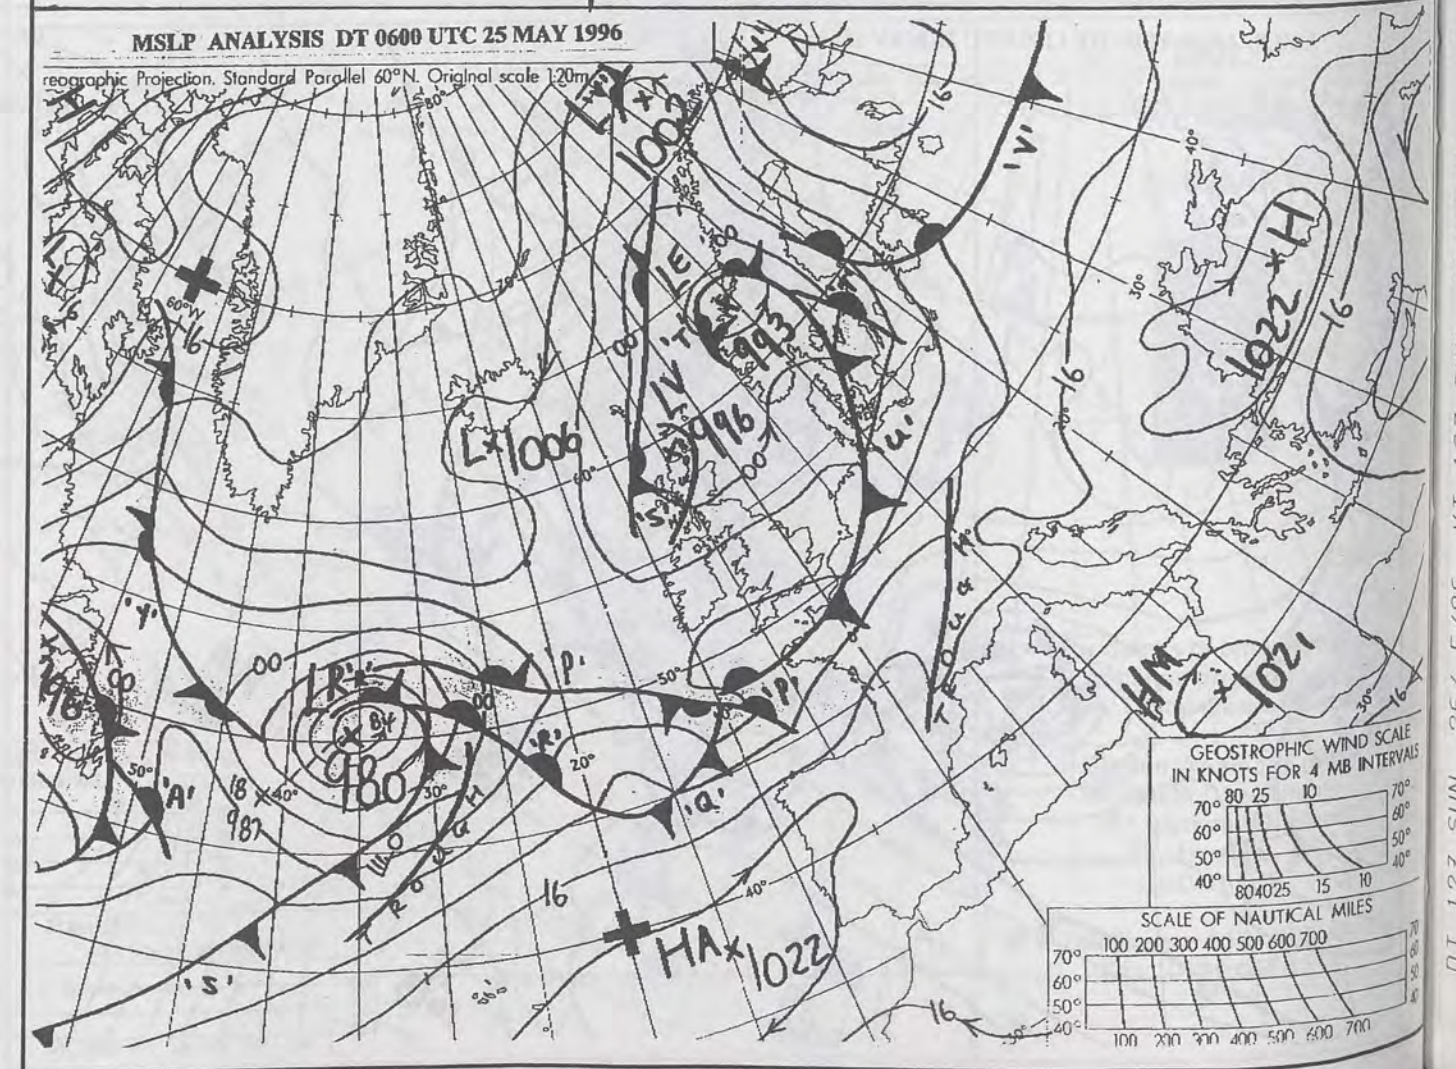 MSLP ANALYSIS DT 0600 UTC 25 MAY 1996
reographic Projection. Standard Parallel 60°N. Original scale 1:20m
80°
1002
16
'V'
40°
H
1022
30°
16
60°W
16
70°
00
LE
'T'
993
00
LV
996
16
L×1006
'U'
60°
00
'S'
'Y'
TROUGH
00
00
LR
'P'
50°
'P'
HM
1021
30°
16
976
84
00
980
'R'
20°
50°
'A'
18
40°
30°
987
'Q'
TROUGH
16
40°
HA×1022
'S'
16
GEOSTROPHIC WIND SCALE
IN KNOTS FOR 4 MB INTERVALS
80 25 10
70° 70°
60° 60°
50° 50°
40° 40°
80 40 25 15 10
SCALE OF NAUTICAL MILES
100 200 300 400 500 600 700
70° 70
60° 60
50° 50
40° 40
100 200 300 400 500 600 700